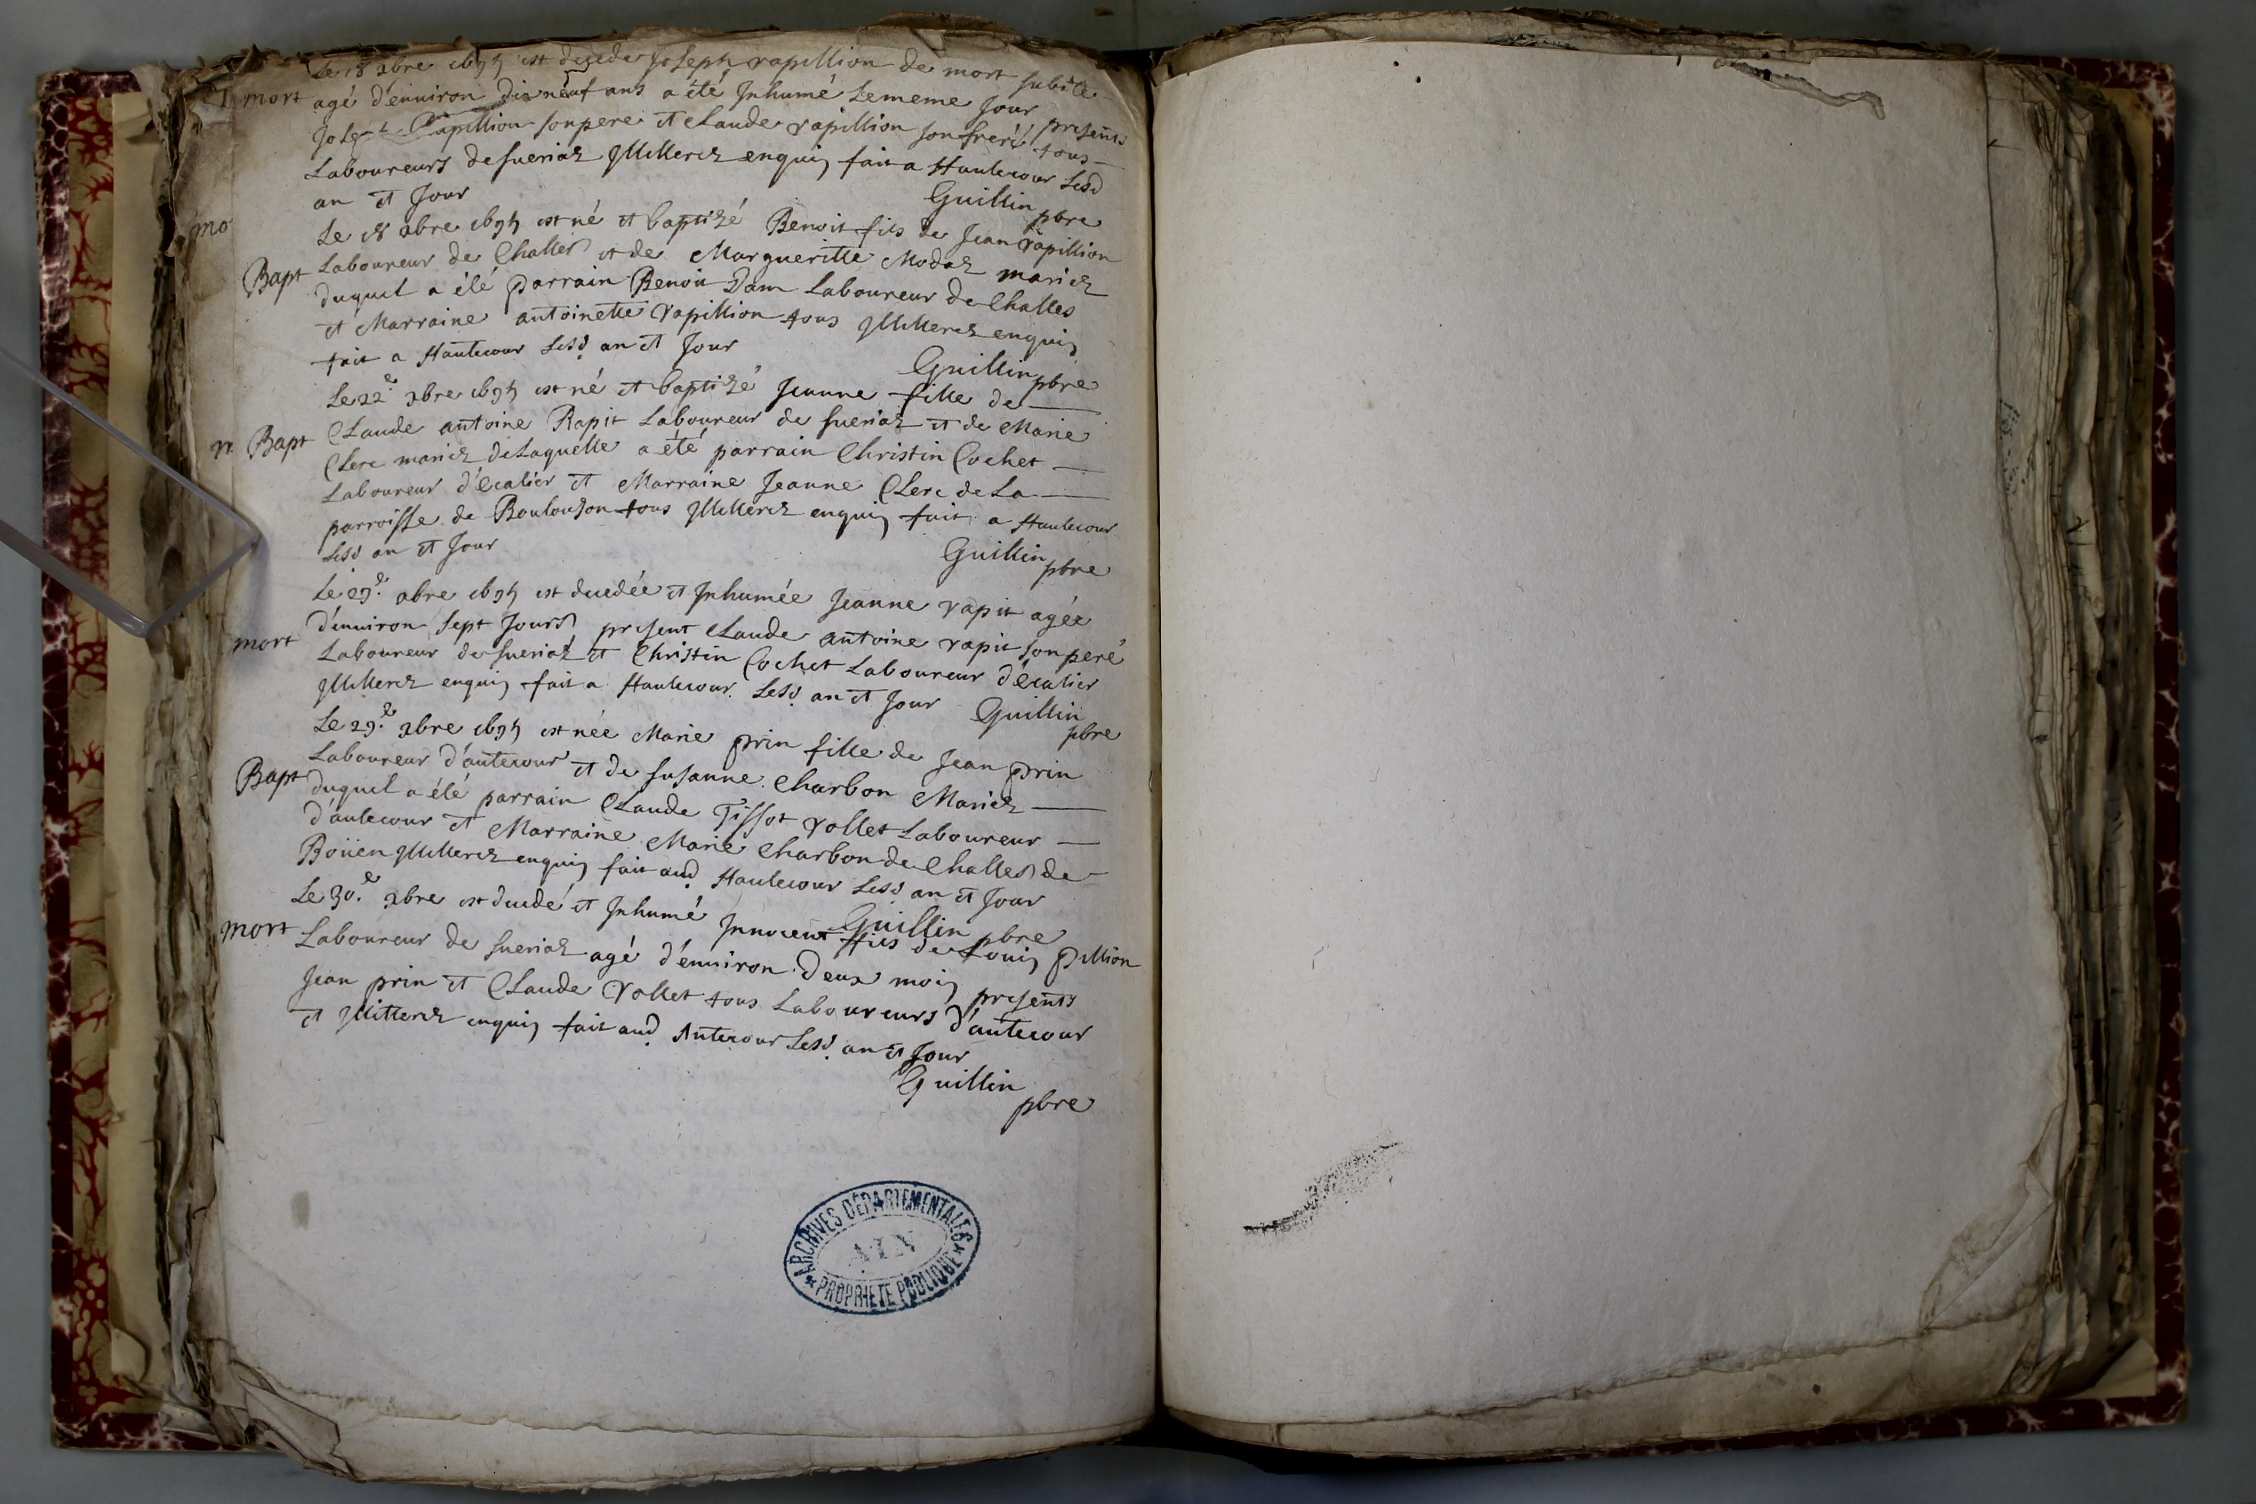 Le 18 xbre 1695 est decede Joseph rapillion de mort subite
mort agé d'enuiron dix neuf ans a été Inhumé Lememe Jour presents
Joseph Rapillion sonpere et Claude rapillion son frere tous
Laboureurs de sueriaz Illiterez enquis fait a Hautecour Lesd
an et Jour
Guillin pbre
mo
Le 18 xbre 1695 est né et baptizé Benoit fils de Jean Rapillion
Bapt Laboureur de Challes et de Margueritte Modaz mariez
duquel a été parrain Benoit Dam Laboureur de Challes
et Marraine antoinette rapillion tous Illiterez enquis
fait a Hautecour Lesd. an et Jour
Guillin pbre
Le 22e xbre 1695 est né et baptizé Jeanne fille de
Bapt Claude antoine Rapit Laboureur de sueriaz et de Marie
Clerc mariez de Laquelle a été parrain Christin Cochet
Laboureur d'écalier et Marraine Jeanne Clerc de La
parroisse de Boulouson tous Illiterez enquis fait a Hautecour
Lesd an et Jour
Guillin pbre
Le 29e. xbre 1695 est decedée et Inhumée Jeanne rapit agée
mort d'enuiron sept Jours present Claude antoine rapit son pere
Laboureur de sueriaz et Christin Cochet Laboureur d'écalier
Illiterez enquis fait a Hautecour. Lesd. an et Jour
Guillin pbre
Le 29.e xbre 1695 est née Marie prin fille de Jean prin
Laboureur d'autecour et de susanne Charbon Mariez
Bapt duquel a été parrain Claude Tissot rollet Laboureur
d'autecour et Marraine Marie Charbon de Challes de
Boüen Illiterez enquis fait aud Hautecour Lesd. an et Jour
Guillin pbre
Le 30.e xbre est decedé et Inhumé Innocent fils de Louis pillion
mort Laboureur de sueriaz agé d'enuiron deux mois presents
Jean prin et Claude rollet tous Laboureurs d'autecour
et Illiterez enquis fait aud Autecour Lesd. an et Jour
Guillin
pbre
ARCHIVES DÉPARTEMENTALES
AIN
PROPRIÉTÉ PUBLIQUE